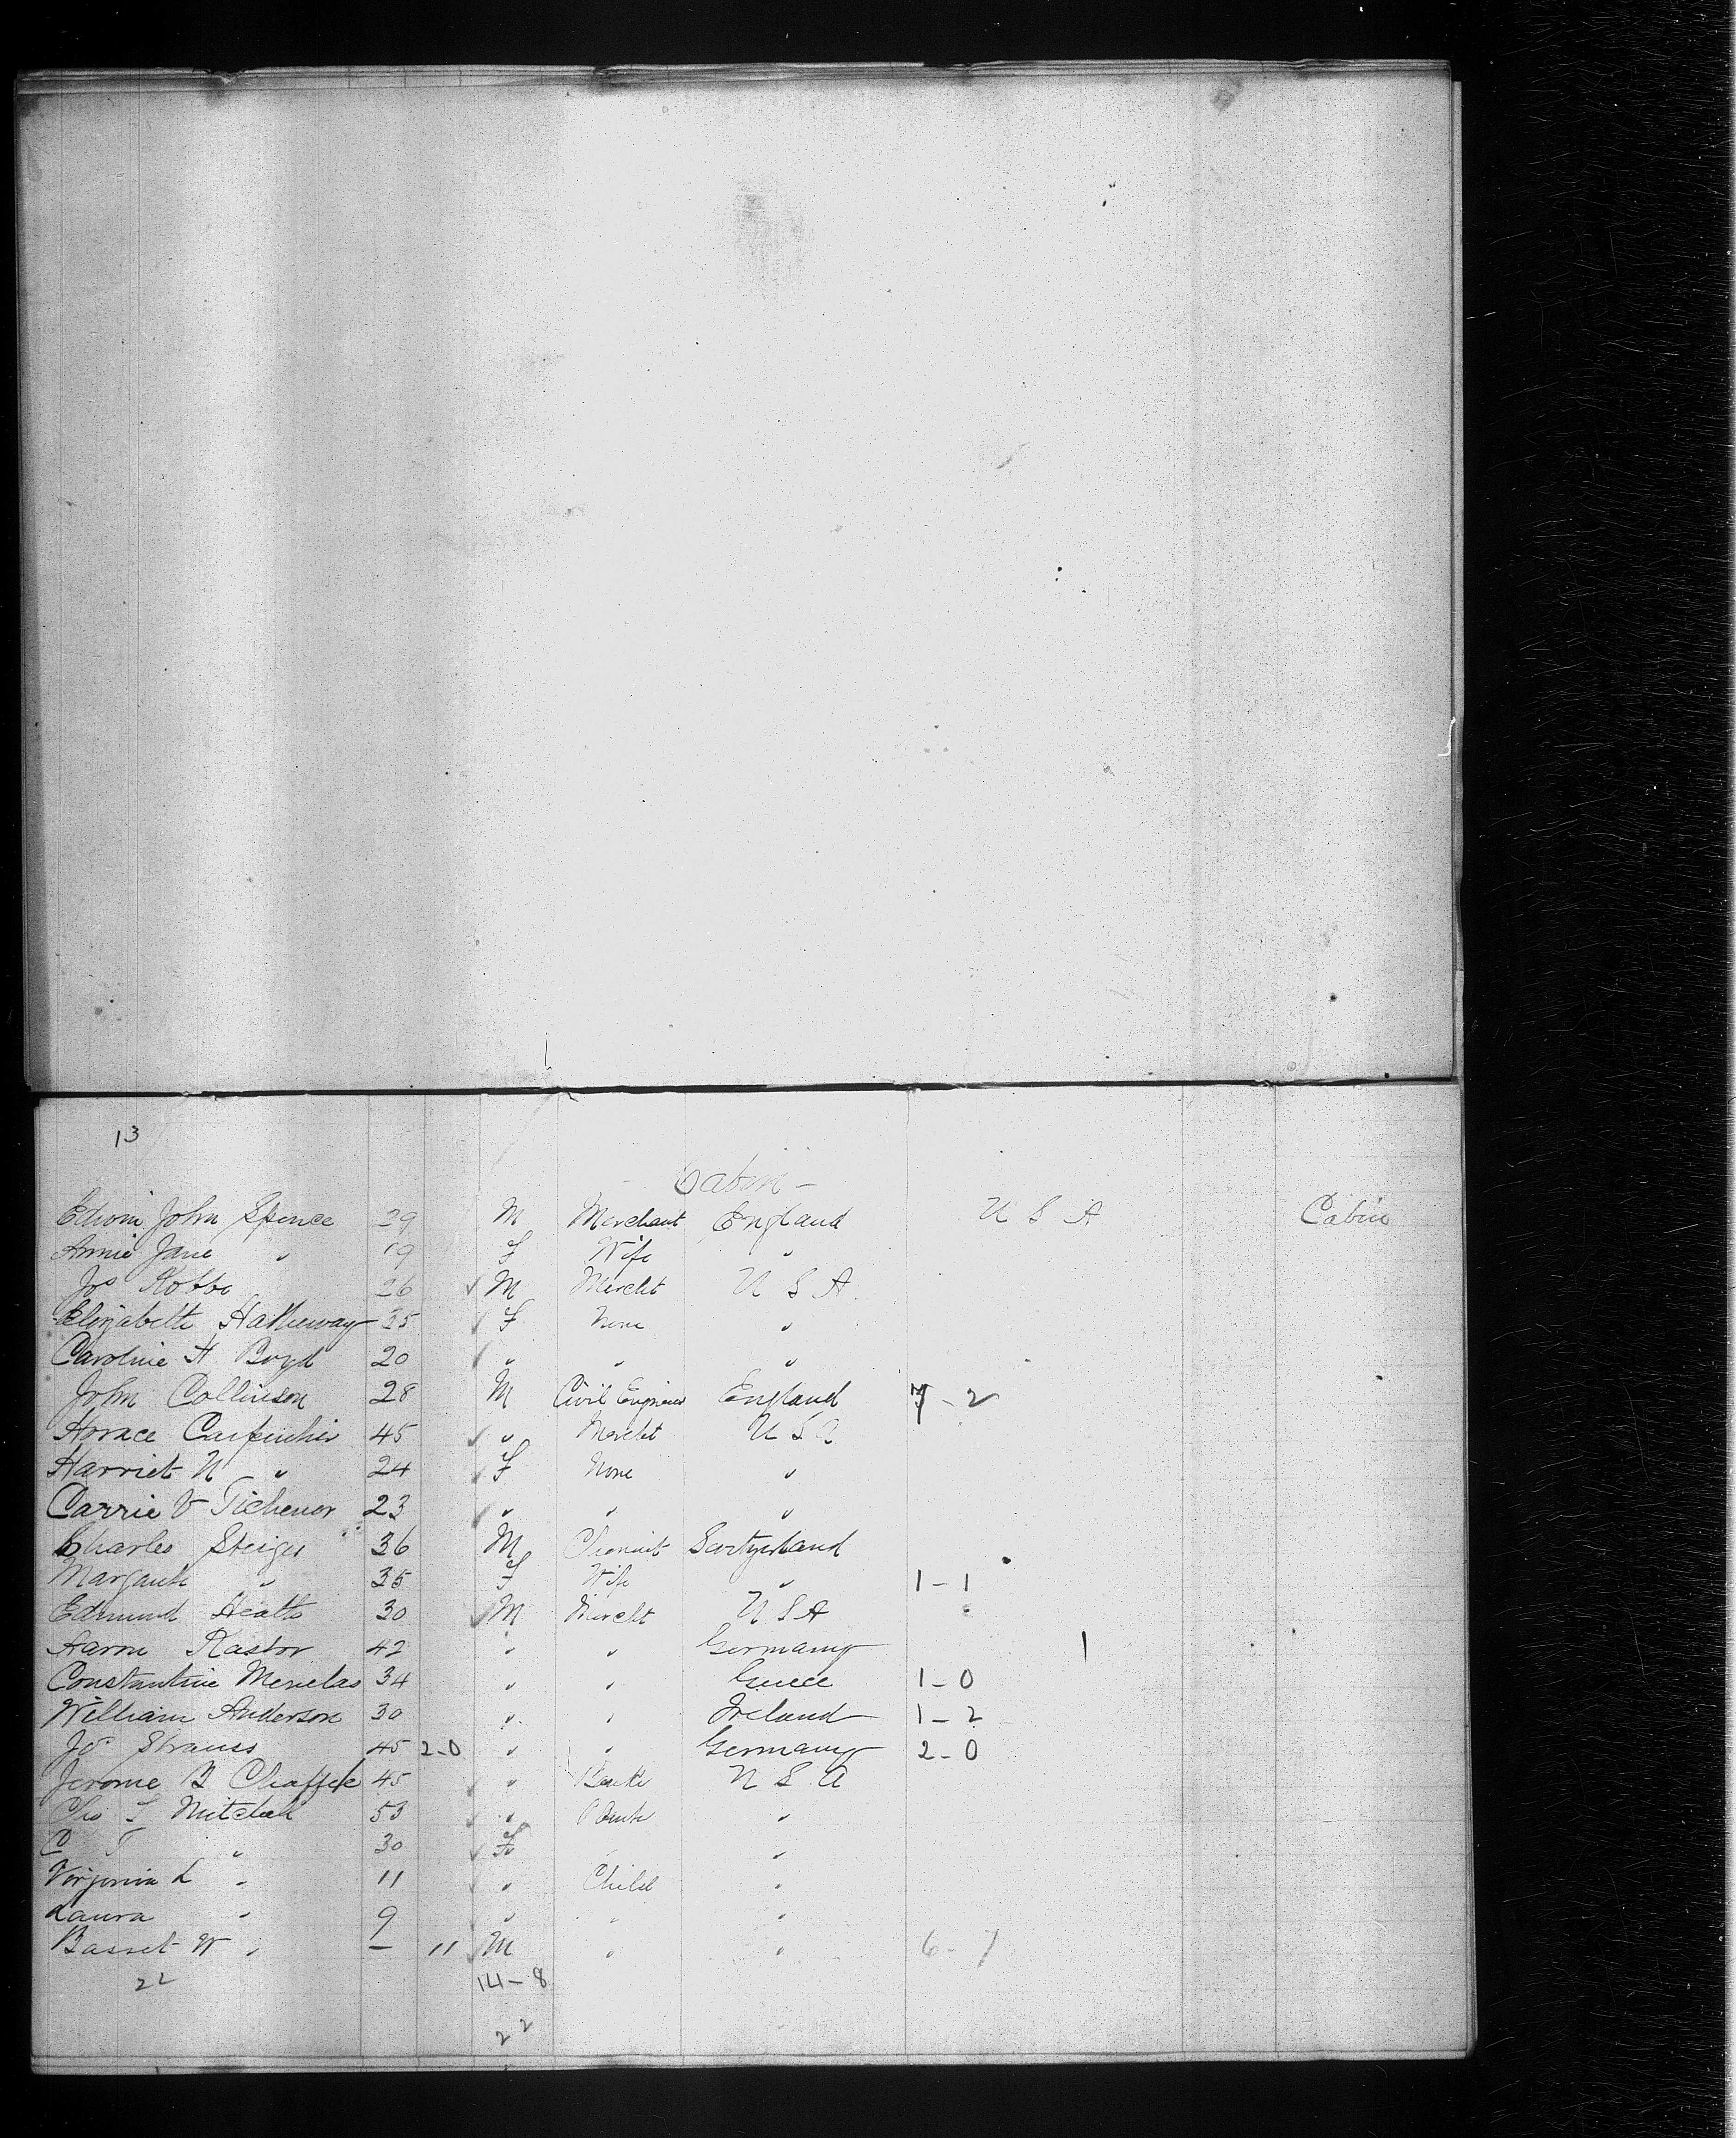 13
Cabin -
Edwin John Spence 29 M Merchant England U S A Cabin
Annie Jane " 19 F Wife "
Jos Kobbe 26 M Mercht U S A
Elizabeth Hatheway 35 F None "
Caroline H Boyd 20 " " "
John Collinson 28 M Civil Engineer England 7-2
Horace Carpenter 45 " Mercht U S A
Harriet N " 24 F None "
Carrie V Tichenor 23 " " "
Charles Steiger 36 M Switzerland
" 35 F Wife " 1-1
Edmund Heath 30 M Mercht U S A
Aaron Kastor 42 " " Germany 1
Constantine Menelas 34 " " Greece 1-0
William Anderson 30 " " Ireland 1-2
Jos Strauss 45 2-0 " " Germany 2-0
Jerome B Chaffee 45 " U S A
Mitchell 53 " "
C " 30 F "
Virginia L " 11 " Child "
Laura " 9 " " "
Basset W " - 11 M " " 6-7
22 14-8
22